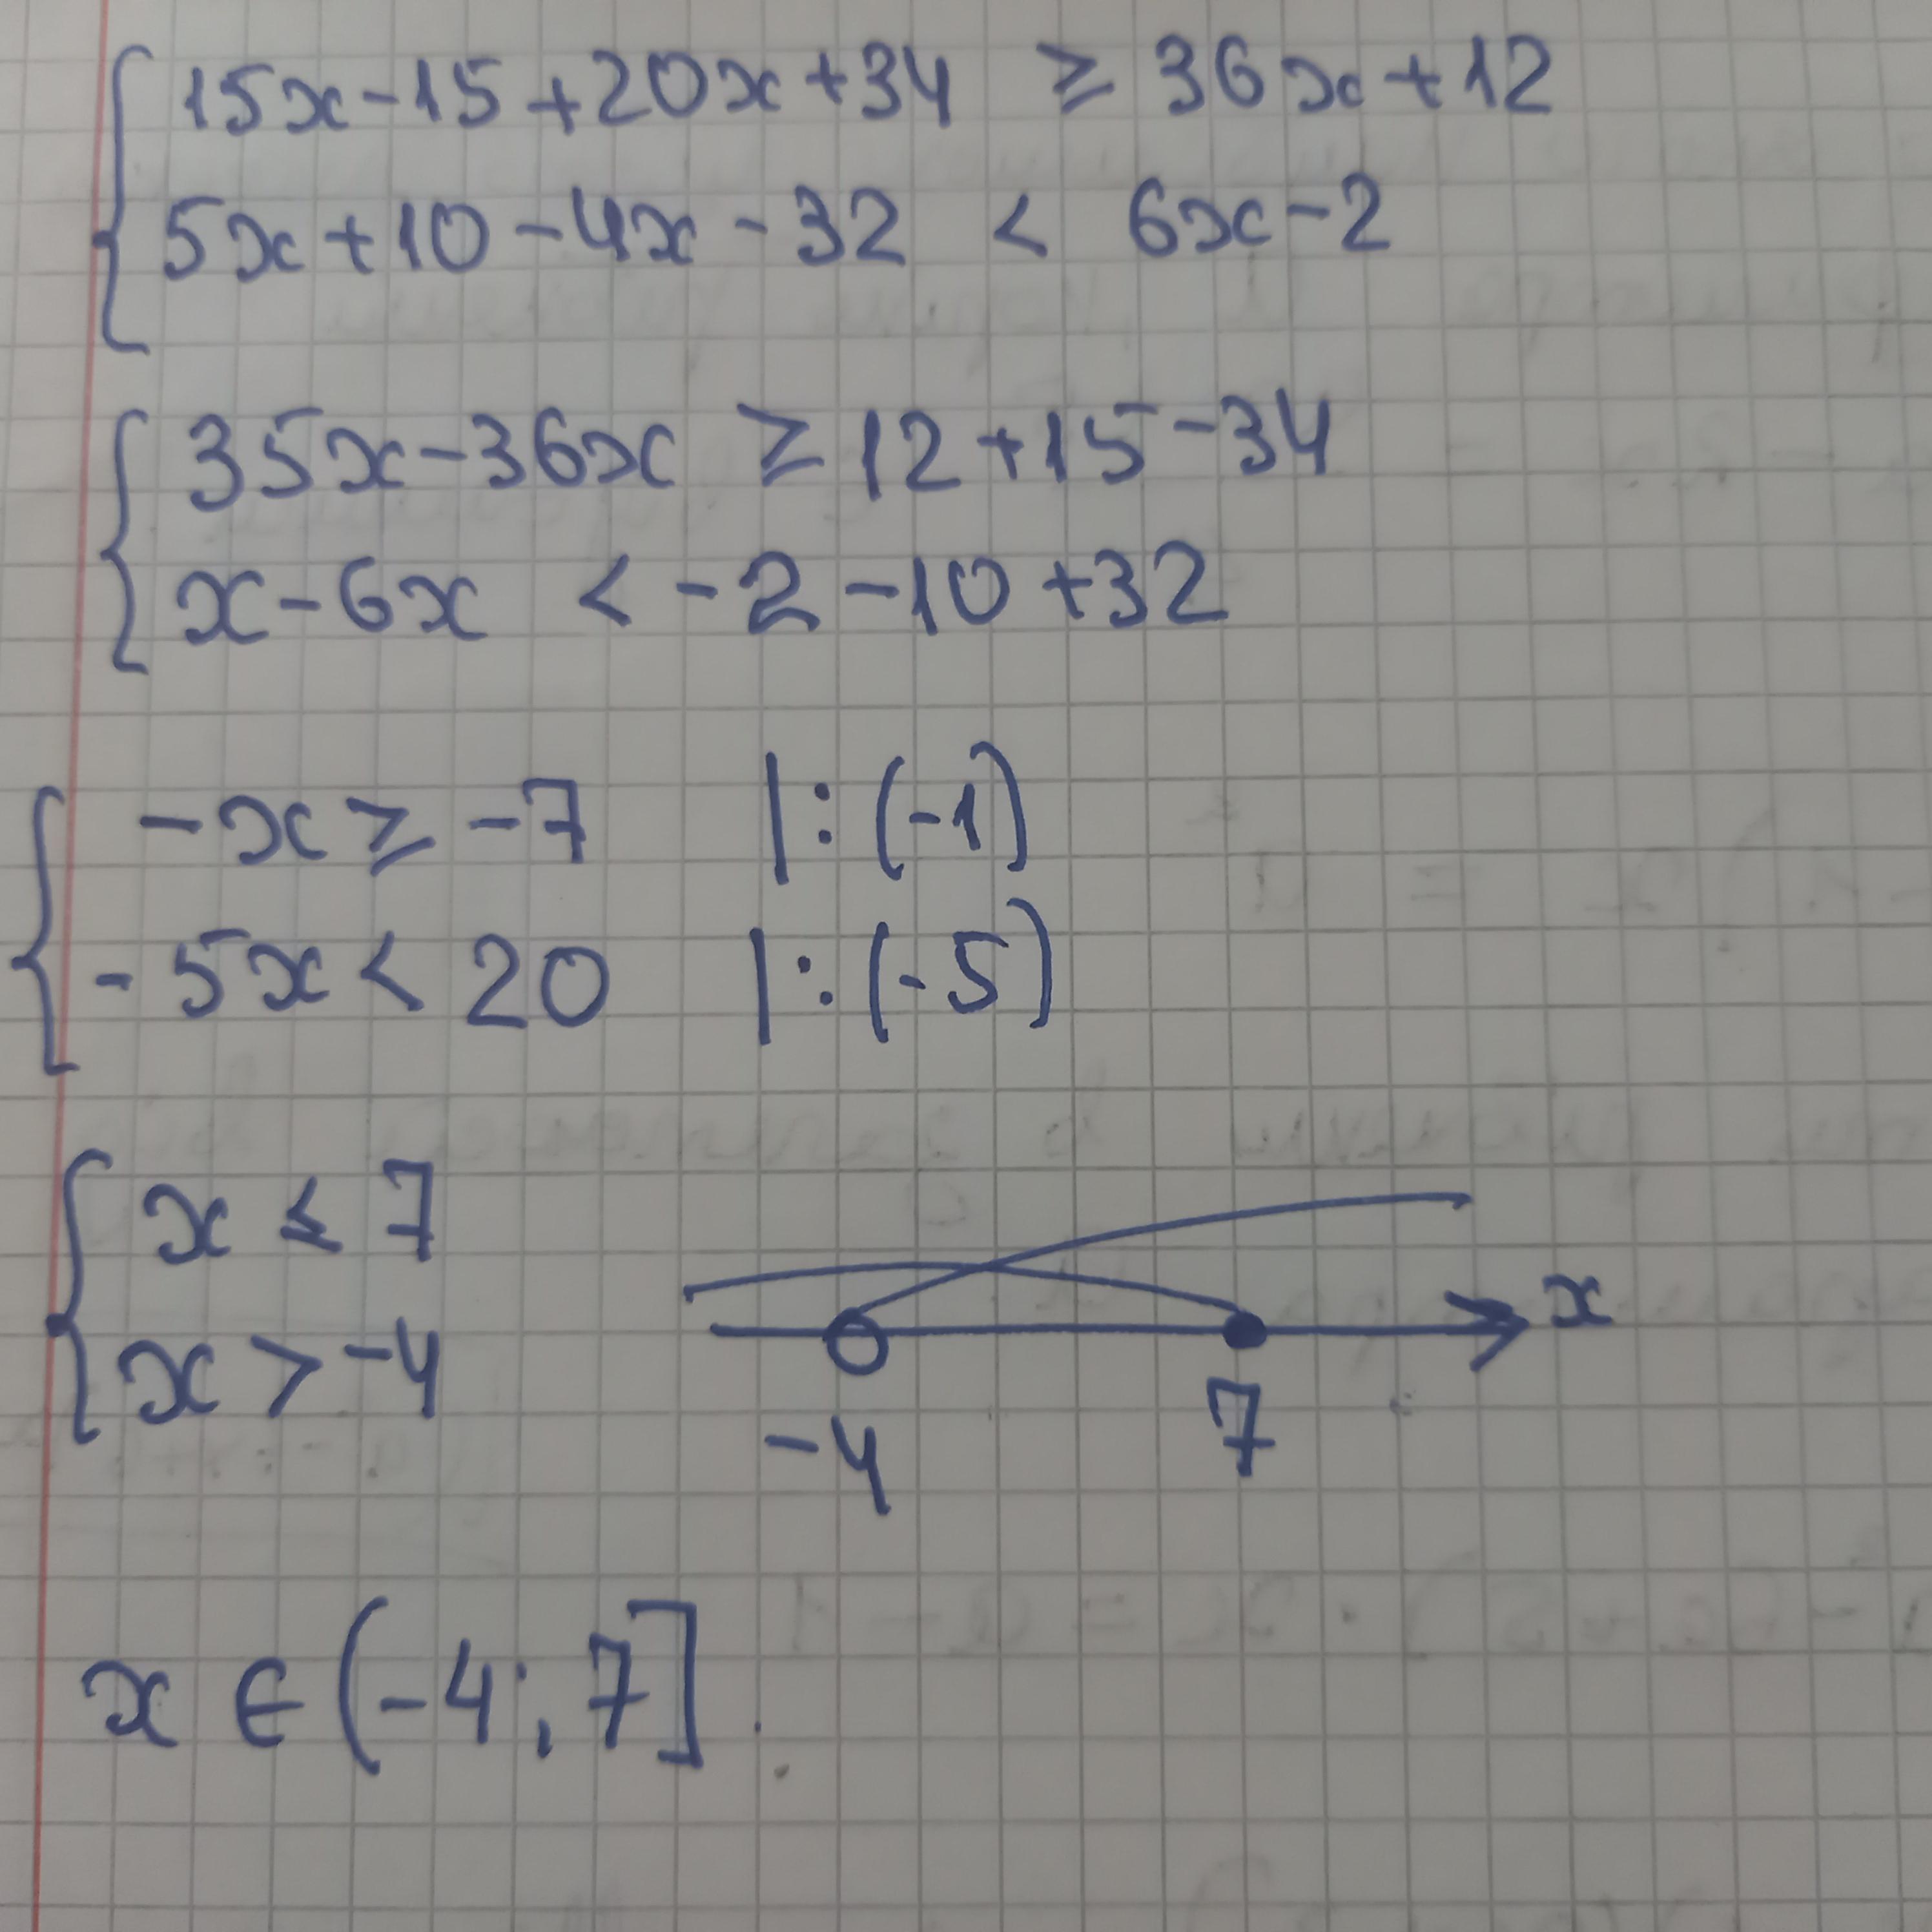 15x-15+20x+34 ≥ 36x+12
5x+10-4x-32 < 6x-2
35x-36x ≥ 12+15-34
x-6x < -2-10+32
-x ≥ -7 |:(-1)
-5x < 20 |:(-5)
x ≤ 7
x > -4
x
-4 7
x ∈ (-4; 7].